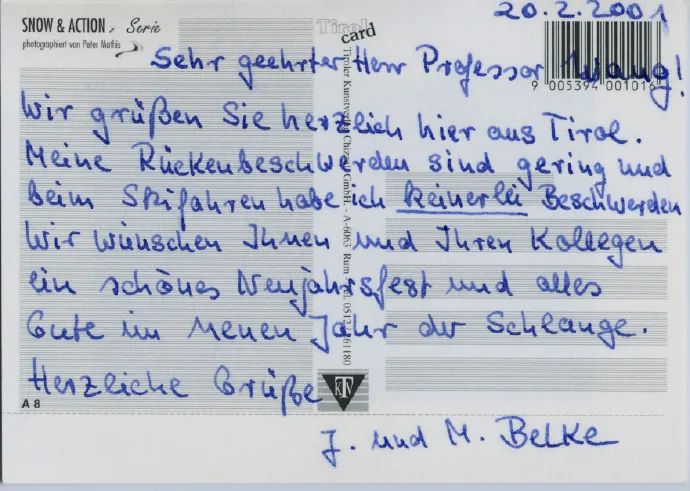 SNOW & ACTION, Serie
photographiert von Peter Mathis
Tirol
card
20.2.2001
9 005394 001016
Sehr geehrter Herr Professor Wang!
Wir grüßen Sie herzlich hier aus Tirol.
Meine Rückenbeschwerden sind gering und
beim Skifahren habe ich keinerlei Beschwerden
Wir wünschen Ihnen und Ihren Kollegen
ein schönes Neujahrsfest und alles
Gute im neuen Jahr der Schlange.
Herzliche Grüße
J. und M. Belke
Tiroler Kunstverlag Chizzali GmbH. - A-6063 Rum - Tel. 0512 61180
KTV
A 8